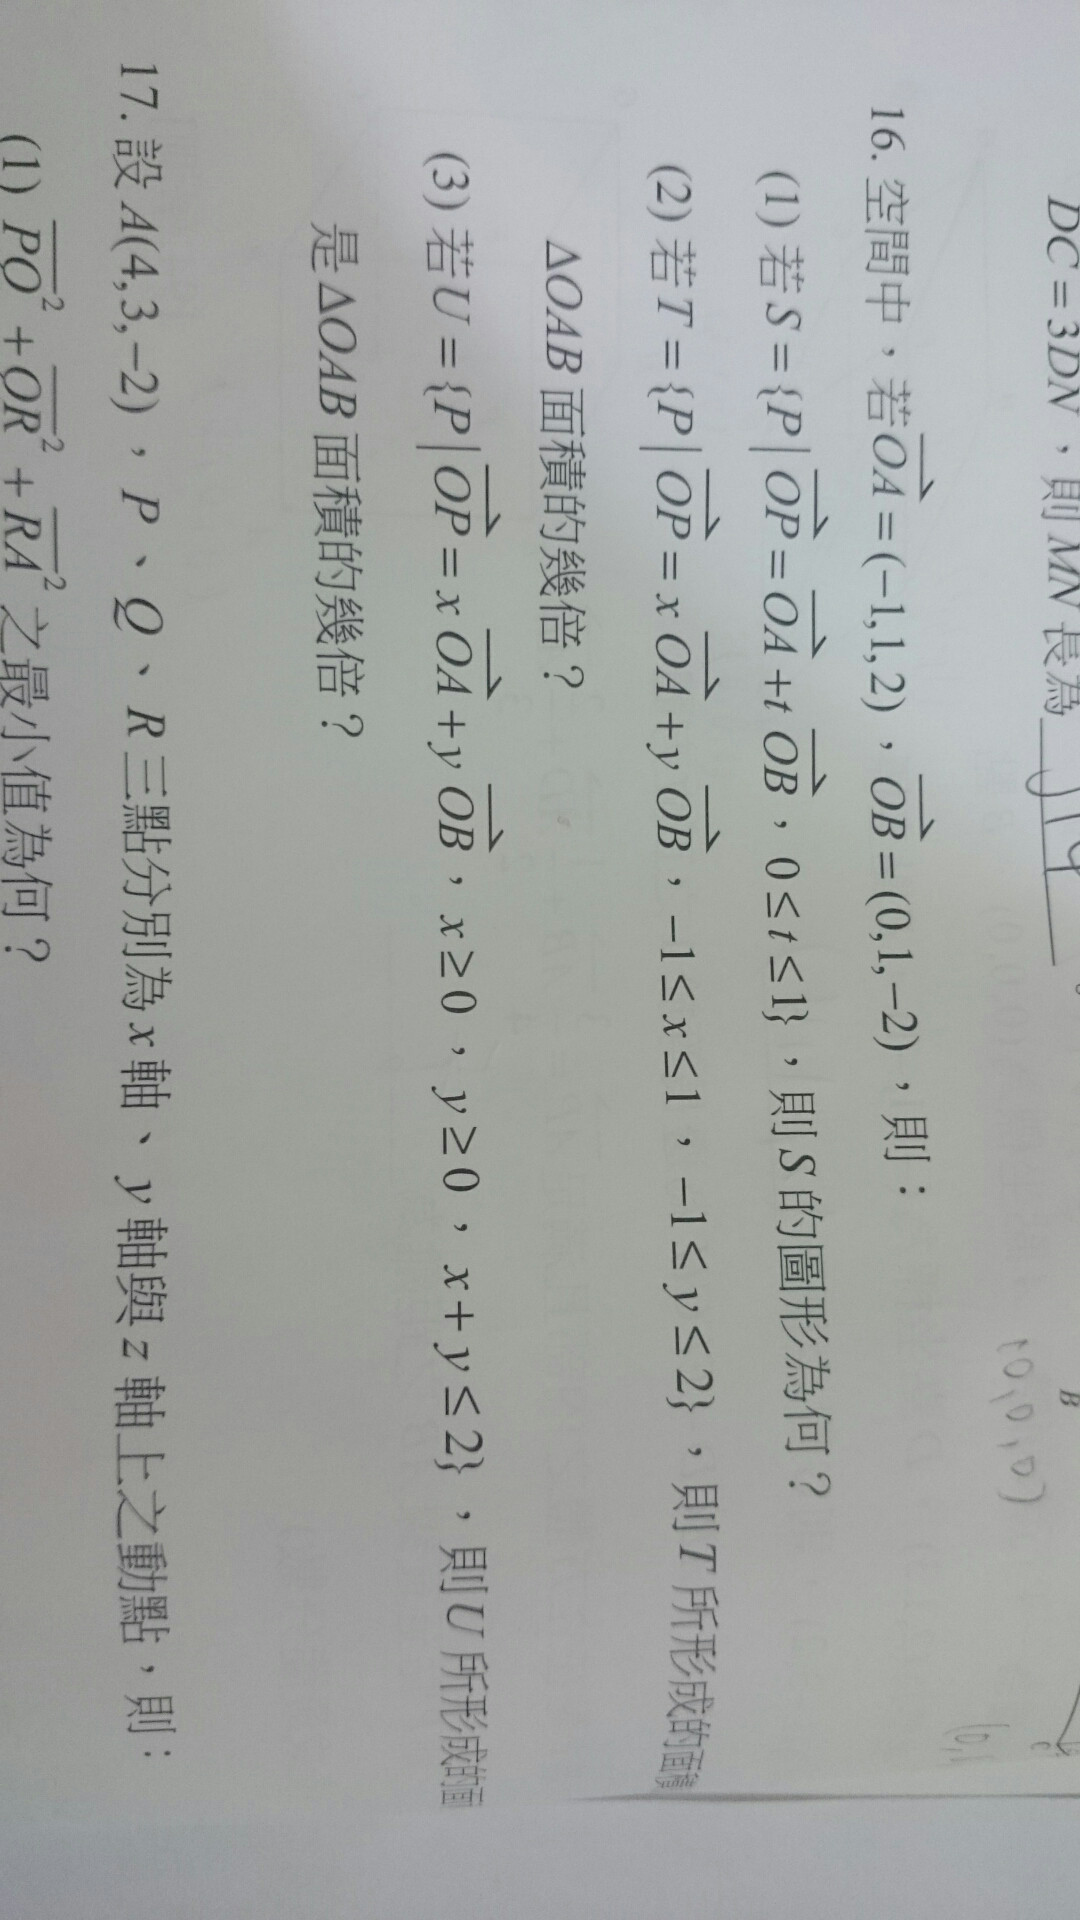 DC = 3DN，則 MN 長為
16. 空間中，若 OA = (−1,1,2)，OB = (0,1,−2)，則：
(1) 若 S = {P | OP = OA + t OB，0 ≤ t ≤ 1}，則 S 的圖形為何？
(2) 若 T = {P | OP = x OA + y OB，−1 ≤ x ≤ 1，−1 ≤ y ≤ 2}，則 T 所形成的面積
ΔOAB 面積的幾倍？
(3) 若 U = {P | OP = x OA + y OB，x ≥ 0，y ≥ 0，x + y ≤ 2}，則 U 所形成的面
是 ΔOAB 面積的幾倍？
17. 設 A(4,3,−2)，P、Q、R 三點分別為 x 軸、y 軸與 z 軸上之動點，則：
(1) PQ² + QR² + RA² 之最小值為何？
B
(0,0,0)
C